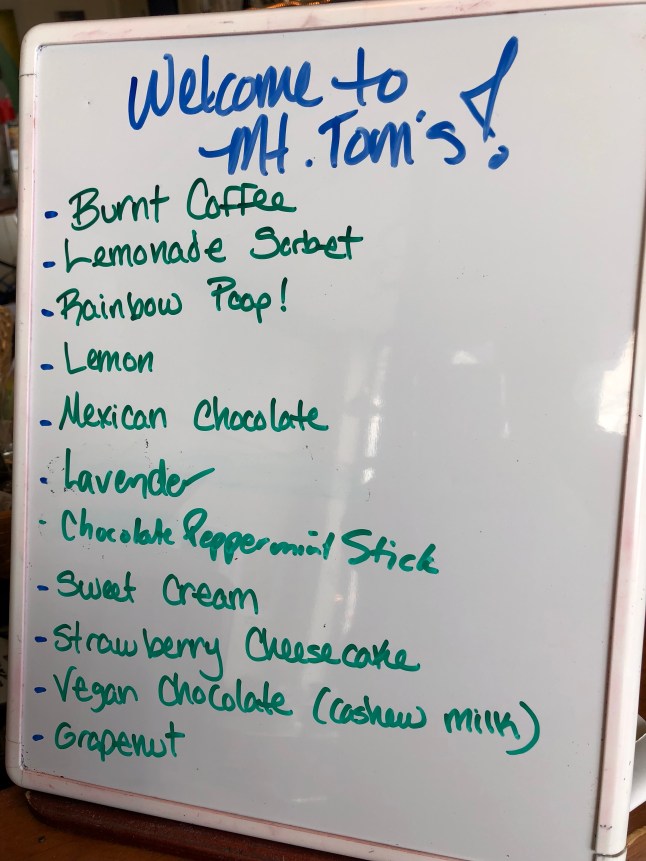 Welcome to
Mt. Tom's!
- Burnt Coffee
- Lemonade Sorbet
- Rainbow Poop!
- Lemon
- Mexican Chocolate
- Lavender
- Chocolate Peppermint Stick
- Sweet Cream
- Strawberry Cheesecake
- Vegan Chocolate (cashew milk)
- Grapenut